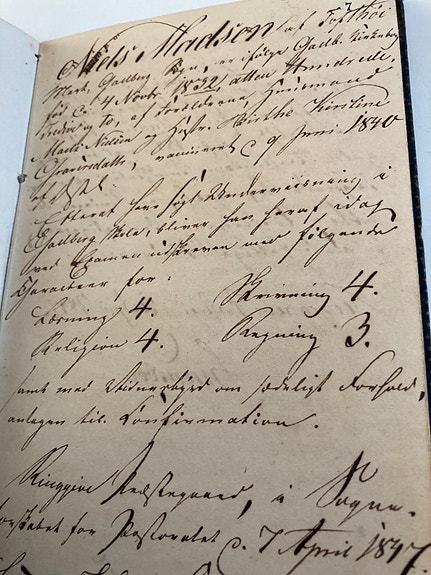 Niels Madson af Tofthöi
Mark, Gadbjerg Sogn, er ifölge Gadb. Kirkebog
föd d: 4 Novbr 1832, atten Hundrede,
tredive og to, af Forældrene, Huusmand
Mads Nielsen og Hustr. Birthe Kirstine
vaccineret d 9 Juni 1840
af
Efterat have sögt Underviisning i
Gadbjerg Skole, bliver han heraf idag
ved Examen udskreven med fölgende
Charakteer for:
Læsning 4. Skrivning 4.
Religion 4. Regning 3.
samt med Vidnesbyrd om sædeligt Forhold,
antagen til Confirmation.
Ringgive Præstegaard, i Sogne-
forstabet for Pastoratet d. 7 April 1847